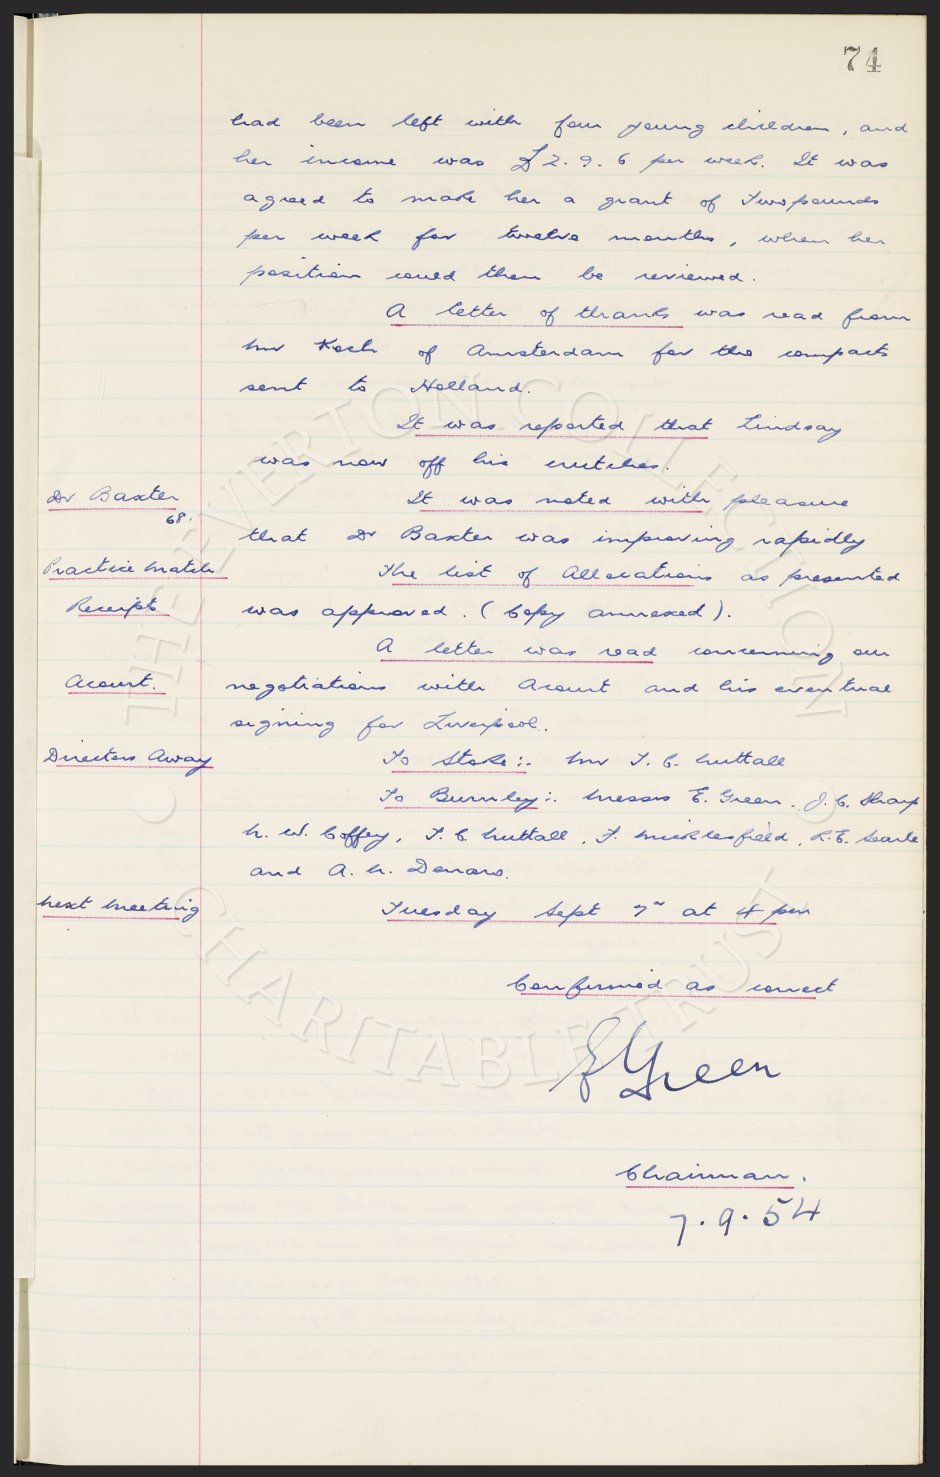 74
had been left with four young children, and
her income was £2. 9. 6 per week. It was
agreed to make her a grant of Two pounds
per week for twelve months, when her
position would then be reviewed.
A letter of thanks was read from
Mr Koch of Amsterdam for the compacts
sent to Holland.
It was reported that Lindsay
was now off his crutches.
Dr Baxter
68.
It was noted with pleasure
that Dr Baxter was improving rapidly
Practice Match
Receipts
The list of Allocations as presented
was approved. (Copy annexed).
A letter was read concerning our
Acourt.
negotiations with Acourt and his eventual
signing for Liverpool.
Directors Away
To Stoke:. Mr T. C. Nuttall
To Burnley:. Messrs E. Green. J. C. Sharp
N. W. Coffey, T. C. Nuttall, F. Micklesfield, R. E. Searle
and A. H. Denaro.
Next Meeting
Tuesday Sept 7th at 4 pm
Confirmed as correct
E Green
Chairman.
7. 9. 54
THE EVERTON COLLECTION
CHARITABLE TRUST